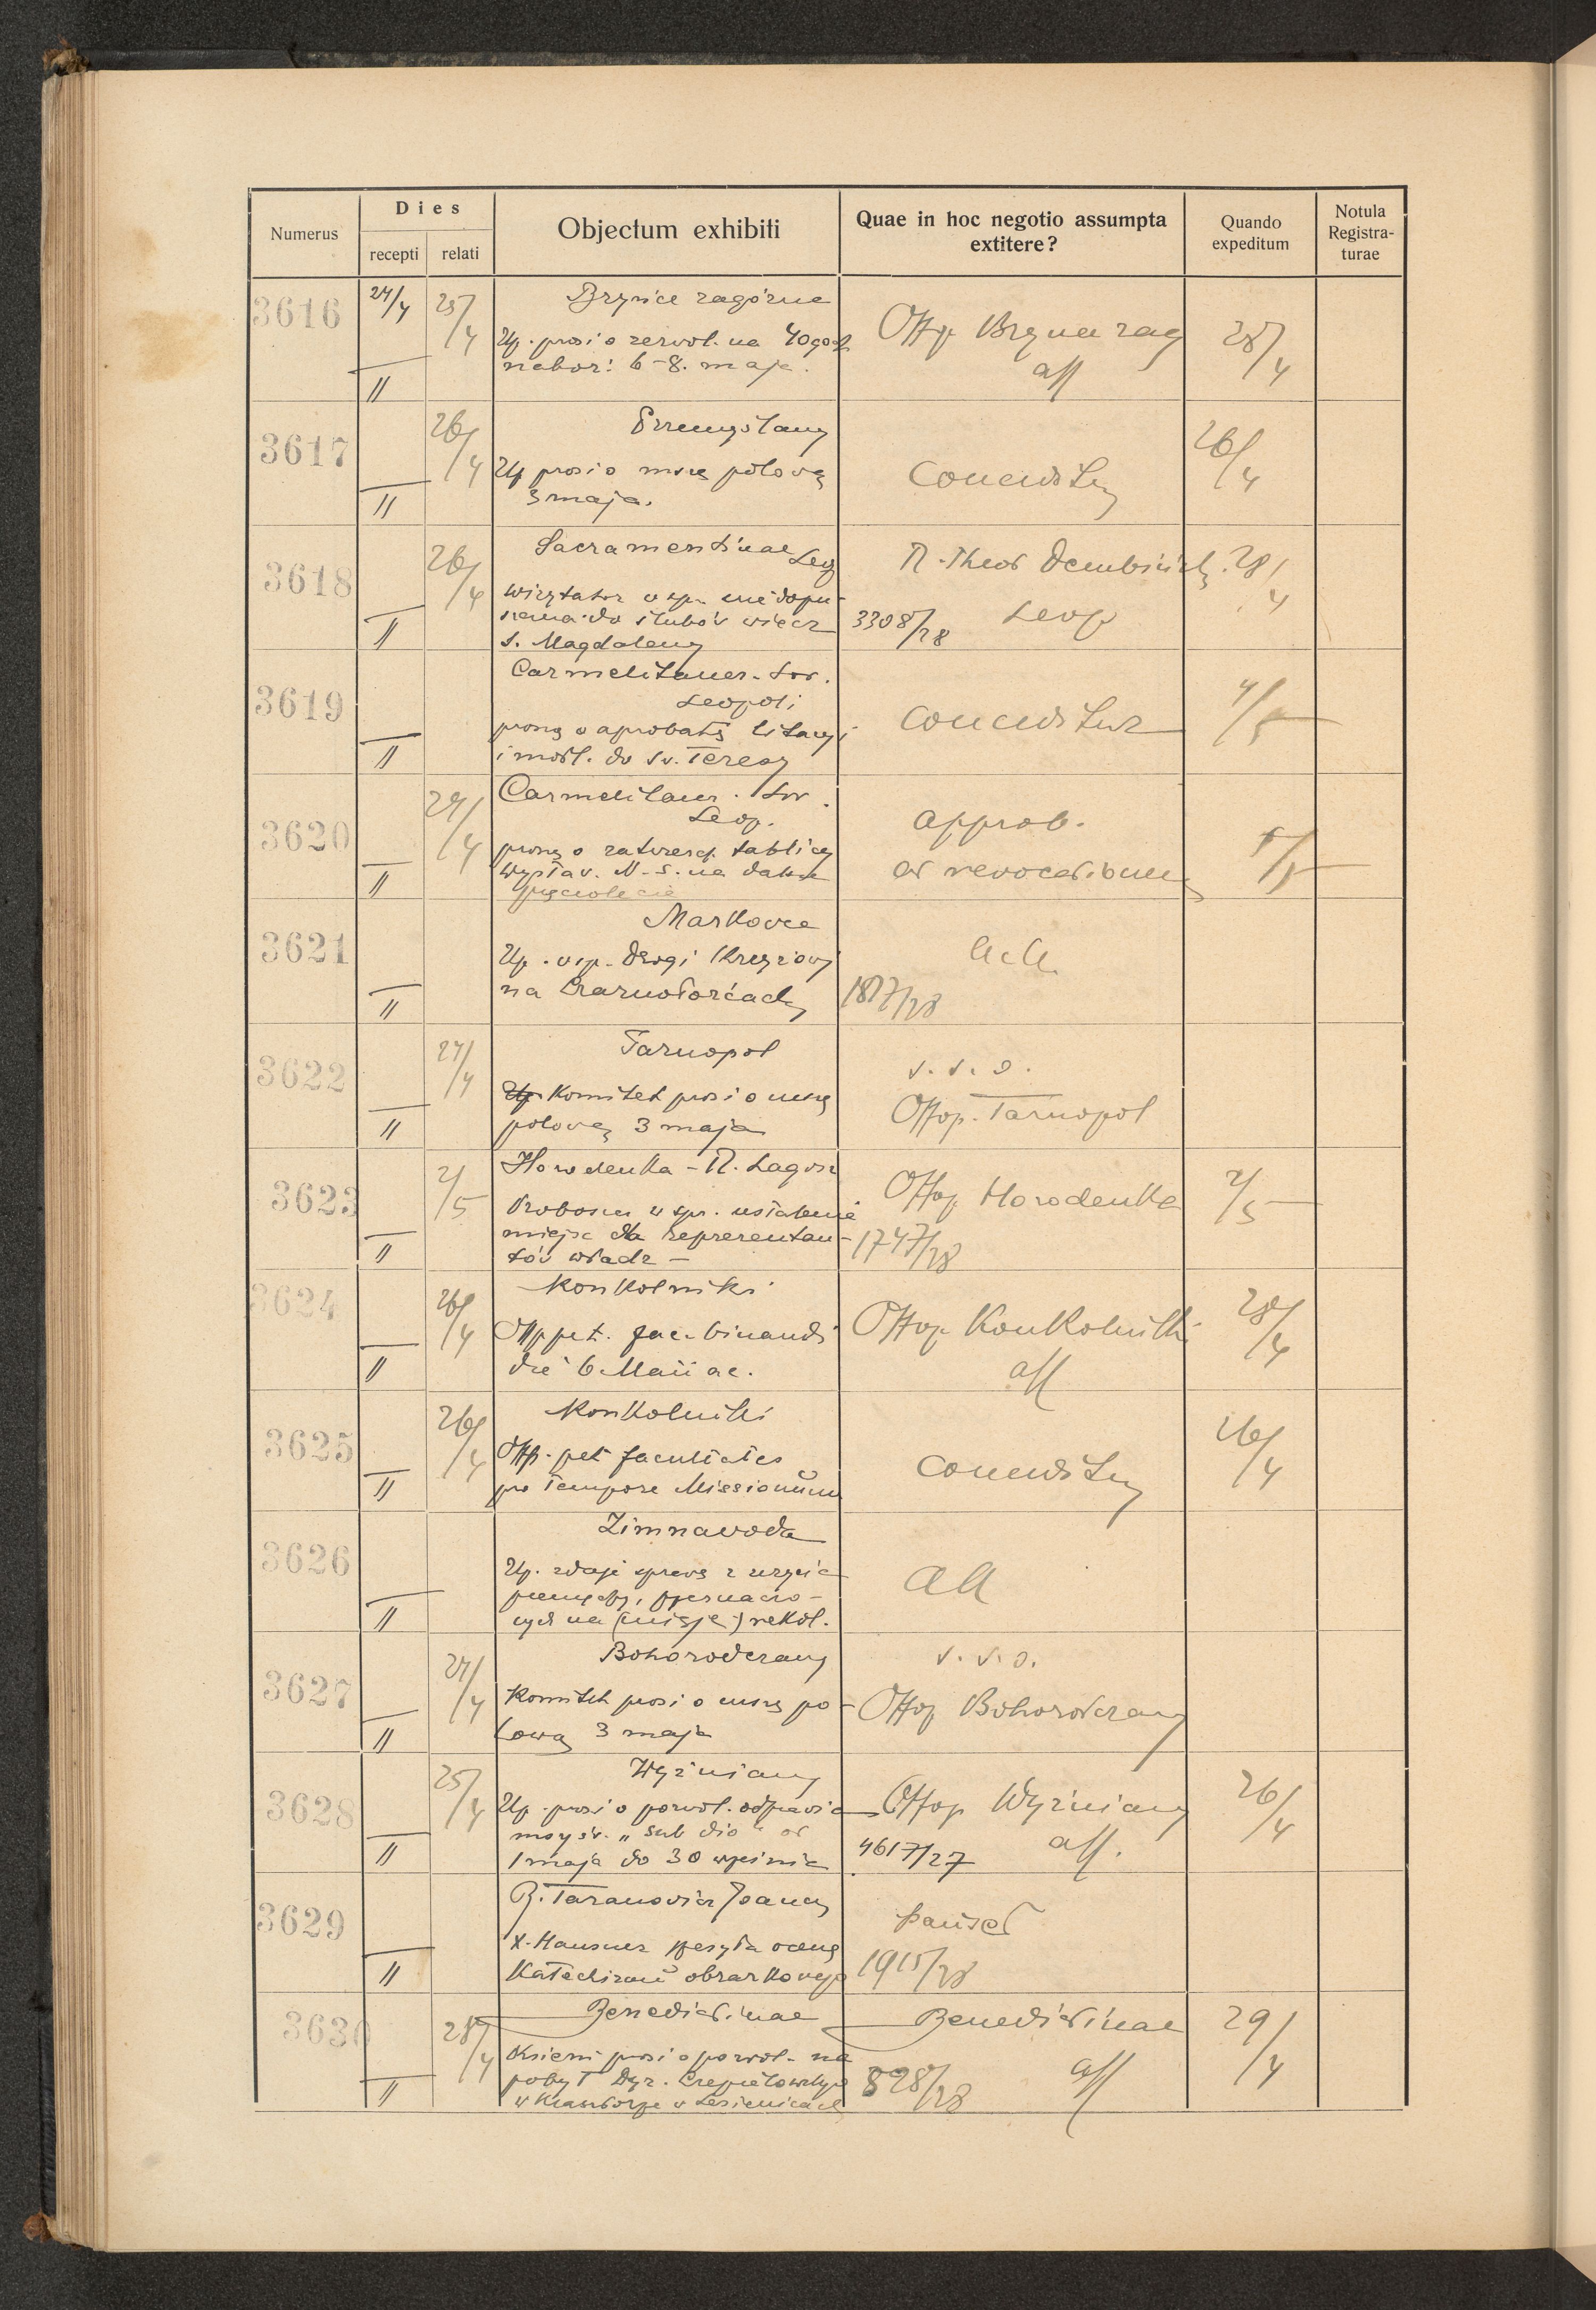 Numerus
Dies
recepti
relati
Objectum exhibiti
Quae in hoc negotio assumpta
extitere?
Quando
expeditum
Notula
Registra-
turae
3616
24/4
25/4
Brzźice zagórne
Up. prosi o zezwol. na 40 god
naboż: 6-8. maja.
Offp.
aff
28/4
3617
"
26/4
Przemyślany
Up prosi o mszę polową
3 maja.
26/4
3618
"
26/4
Sacramentinae Leop
Wizytator w spr. niedopu-
szczenia do ślubów wiecz
s. Magdaleny
R. Theod Dembiński
3308/28 Leop
28/4
3619
"
Carmelitaner. Sor.
Leopoli
proszą o aprobatę litanji
i modl. do św. Teresy
conceditur
4/5
3620
"
27/4
Carmelitaner. Sor.
Leop.
proszą o zatwierdz. tablicy
wystaw. N. S. na dalsze
pięciolecie
approb.
ad revocationem
3621
"
Markowce
Up. w sp. Drogi Krzyżowej
na Czarnołoźcach
1817/28
3622
"
27/4
Tarnopol
Komitet prosi o mszę
polową 3 maja
v. s. o.
Offop. Tarnopol
3623
"
2/5
Horodenka - R. Lagosz
Proboszcz w spr. ustalenia
miejsc dla reprezentan-
tów władz -
Offop Horodenka
1747/28
2/5
3624
"
26/4
Konkolniki
Offp pet. fac. binandi
die 6 Maii ac.
Offop Konkolniki
aff
28/4
3625
"
26/4
Konkolniki
Offp. pet facultates
pro tempore Missionum
26/4
3626
"
Zimnawoda
Up. zdaje sprawę z użycia
pieniędzy, przeznaczo-
nych na (misje) rekol.
3627
"
27/4
Bohorodczany
Komitet prosi o mszę po-
lową 3 maja
v. s. o.
Offop Bohorodczany
3628
"
25/4
Wyżniany
Up. prosi o pozwol. odprawia
mszy św. „sub dio" od
1 maja do 30 września
Offop Wyżniany
4617/27 aff.
26/4
3629
"
R. Taranowicz Joannes
X. Hausner przesyła ocenę
Katechizmu obrazkowego
1915/28
3630
28/4
"
Benedictinae
Ksieni prosi o pozwol. na
pobyt Dyr. Czepielowskiego
w Klasztorze w Lesienicach
Benedictinae
828/28 aff
29/4